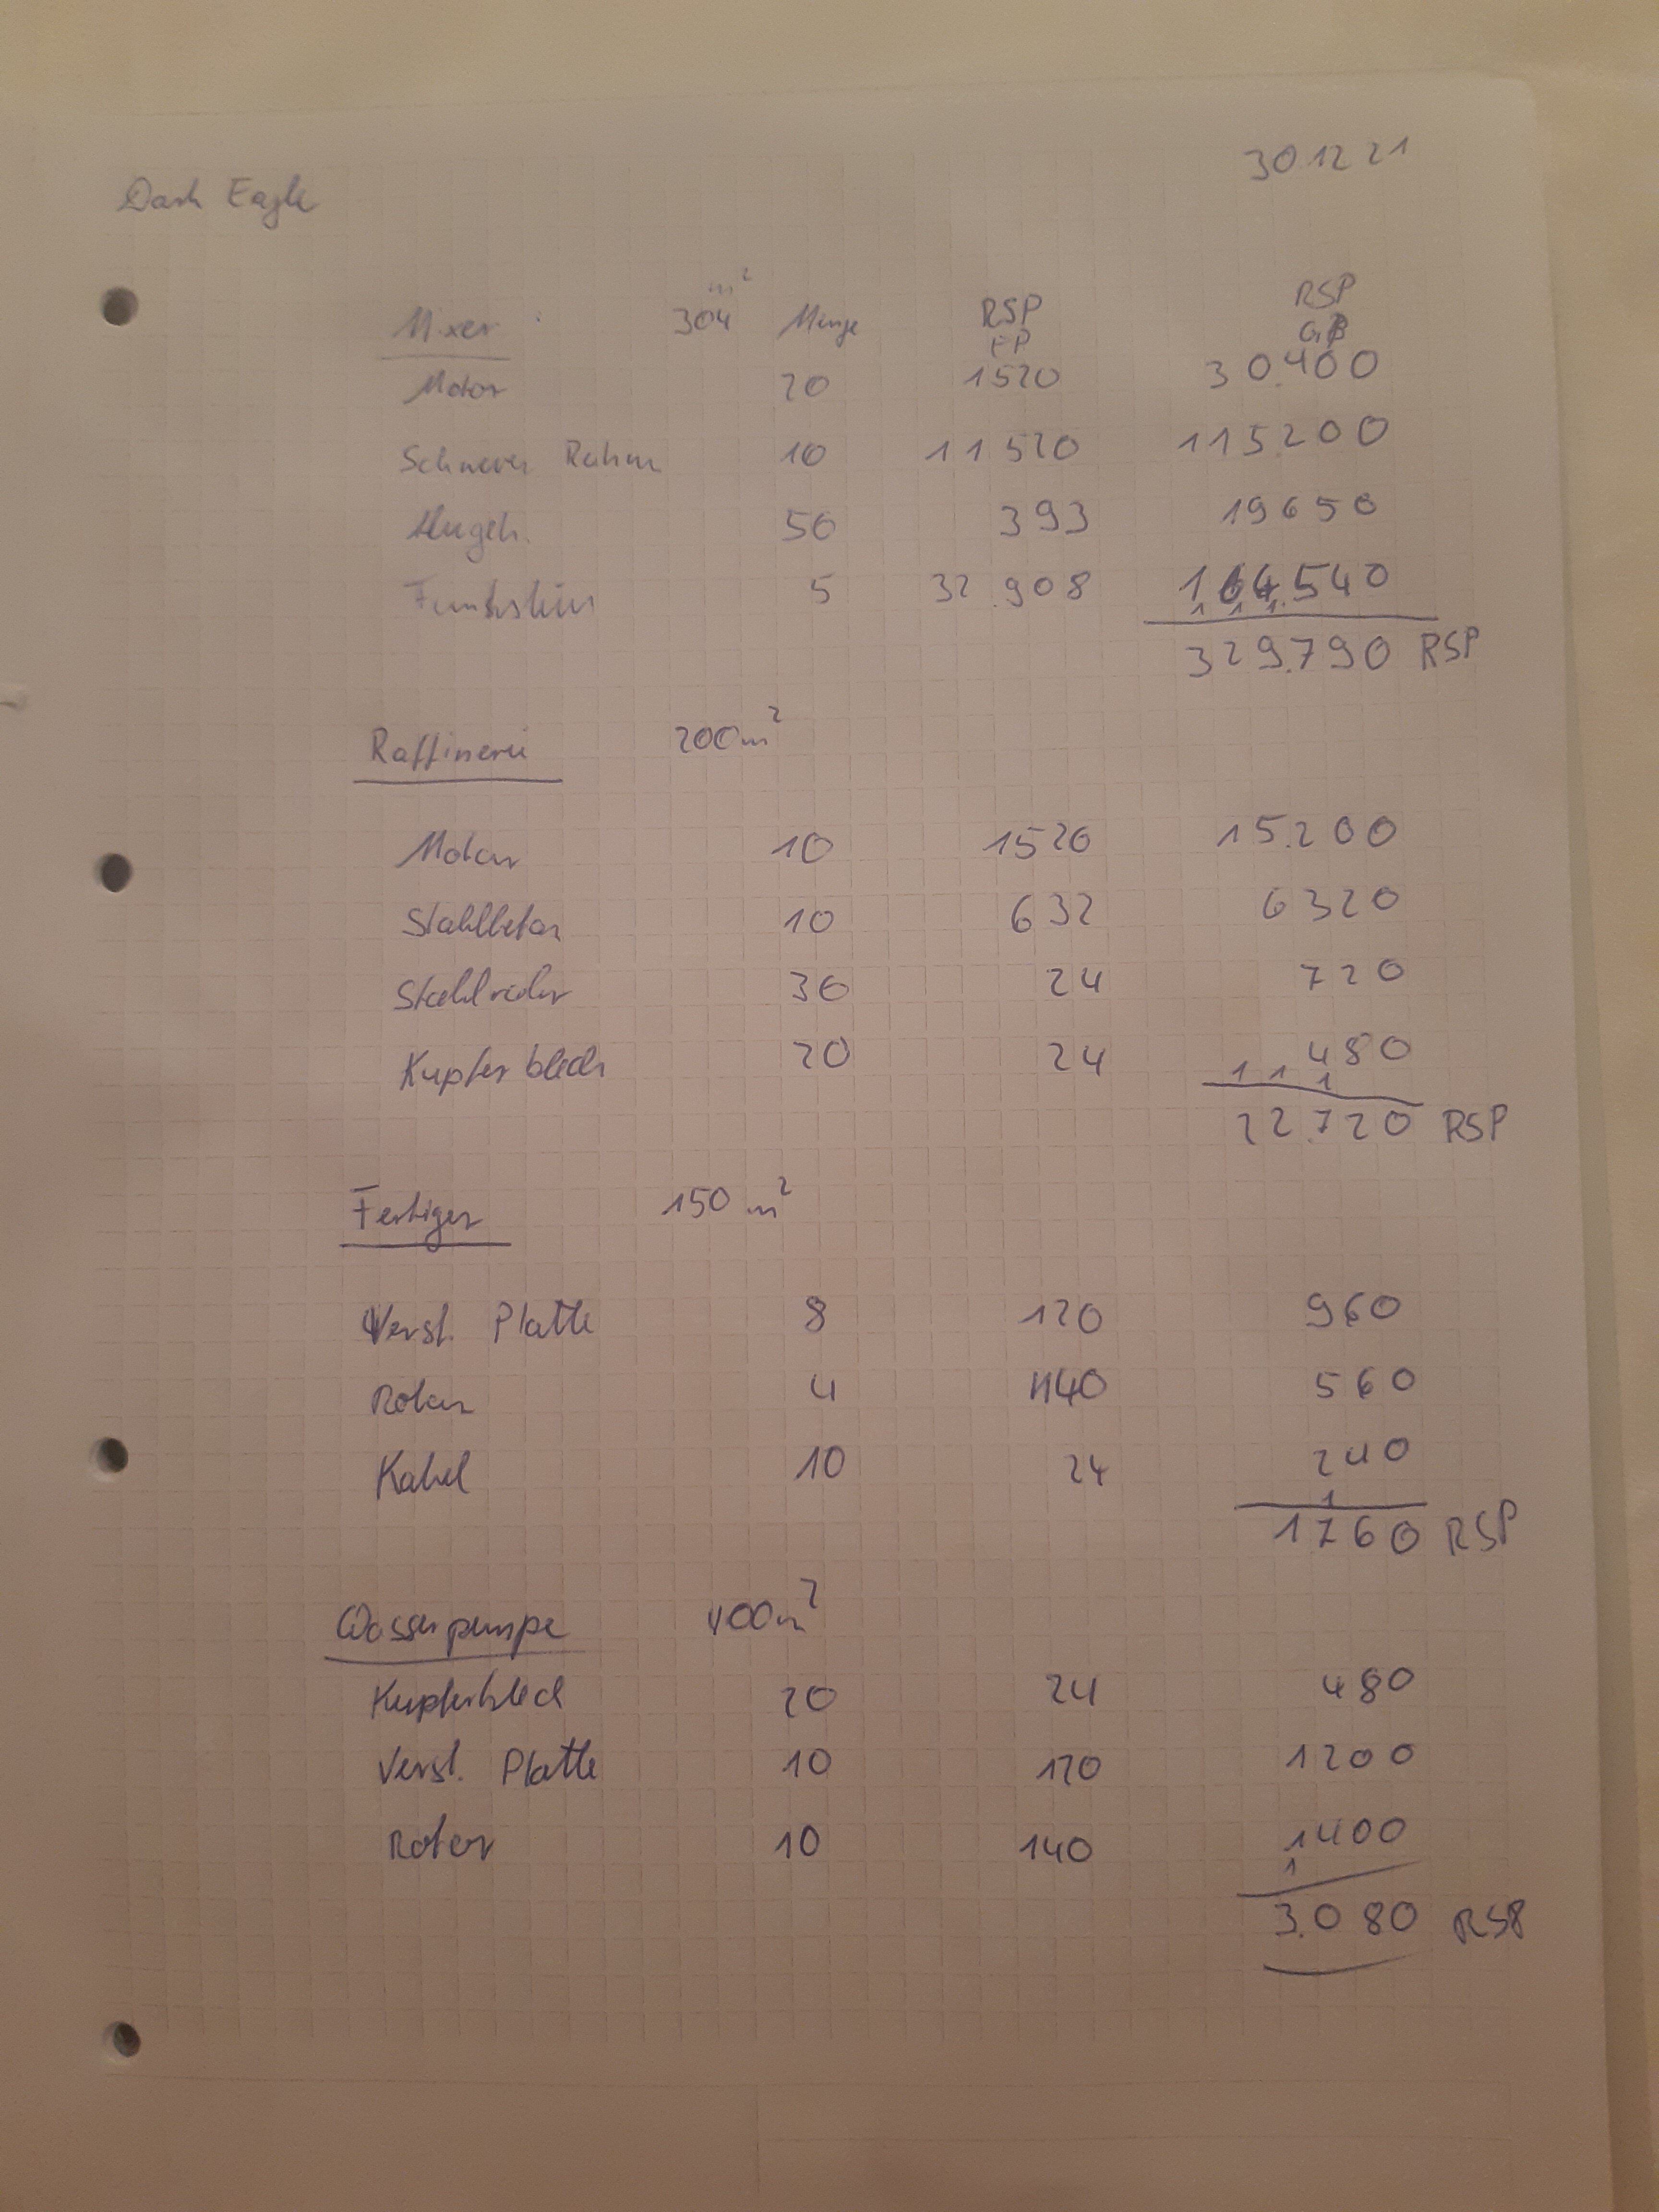 30.12.21
Dark Eagle
Mixer : 304 m² Menge RSP EP RSP GP
Motor 20 1520 30.400
Schwerer Rahm 10 11520 115.200
50 393 19650
5 32.908 164.540
329.790 RSP
Raffinerie 200m²
Motor 10 1520 15.200
Stahlbeton 10 632 6320
Stahlrohr 30 24 720
Kupferblech 20 24 480
22.720 RSP
Fertiger 150 m²
Verst. Platte 8 120 960
Rotor 4 140 560
Kabel 10 24 240
1760 RSP
Wasserpumpe 400m²
Kupferblech 20 24 480
Verst. Platte 10 120 1200
Rotor 10 140 1400
3.080 RSP